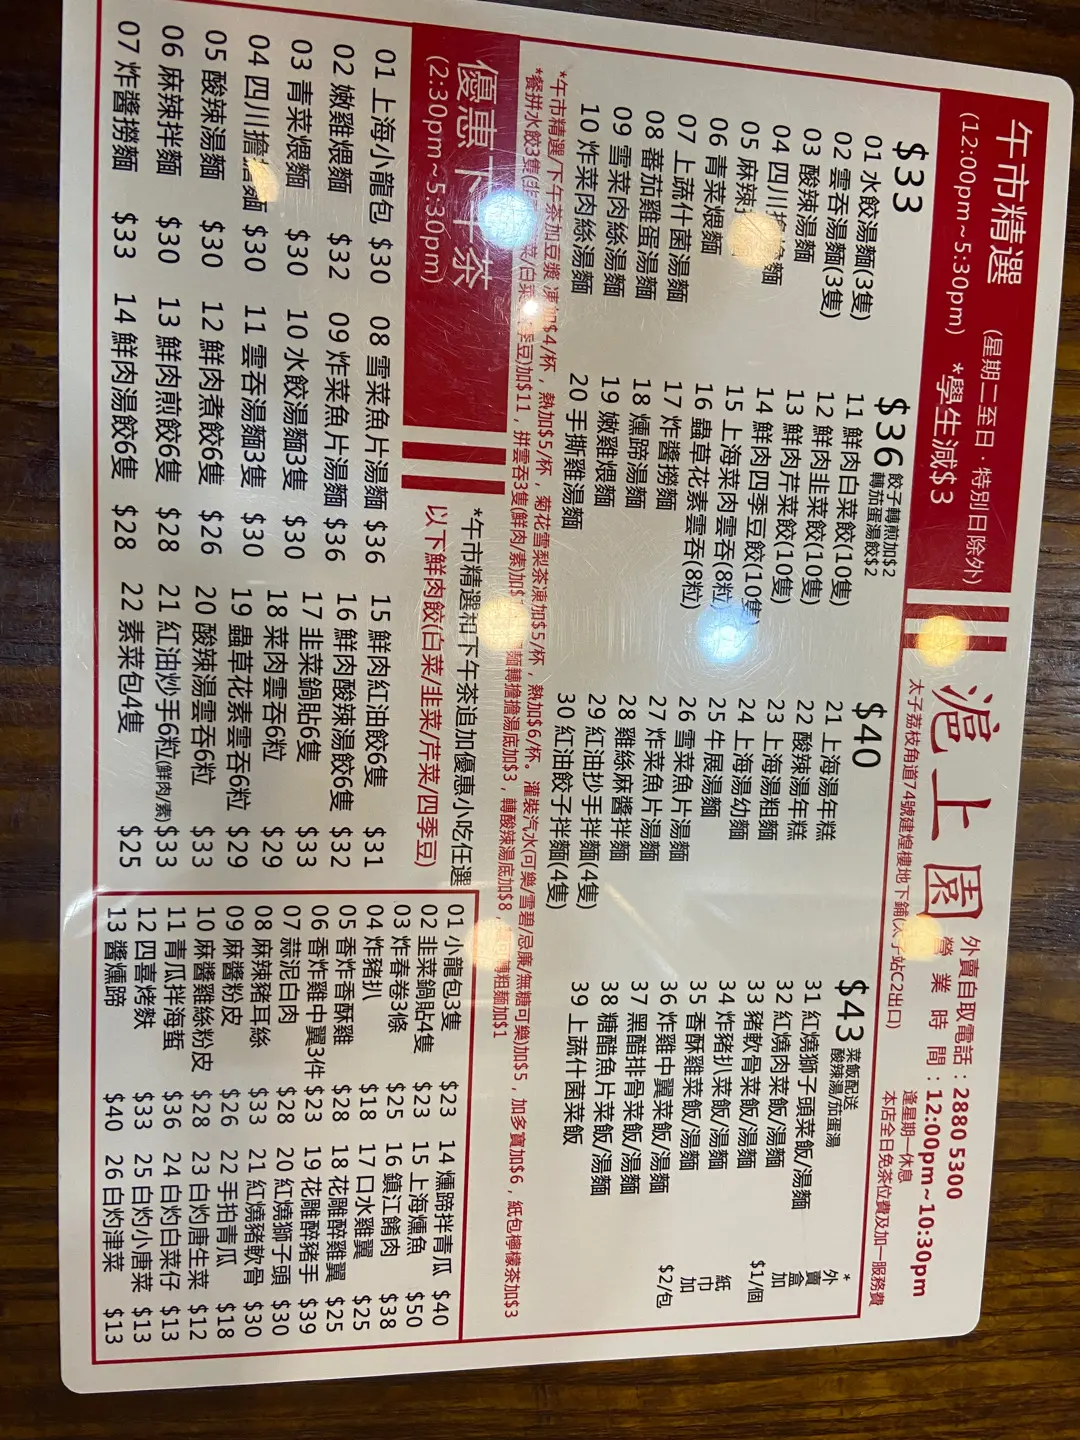 午市精選 (星期二至日·特別日除外)
(12:00pm~5:30pm) *學生減$3
滬上園
太子荔枝角道74號建煌樓地下鋪(太子站C2出口)
外賣自取電話:2880 5300
營業時間:12:00pm~10:30pm
逢星期一休息
本店全日免茶位費及加一服務費
$33
01 水餃湯麵(3隻)
02 雲吞湯麵(3隻)
03 酸辣湯麵
04 四川擔擔麵
05 麻辣
06 青菜煨麵
07 上蔬什菌湯麵
08 蕃茄雞蛋湯麵
09 雪菜肉絲湯麵
10 炸菜肉絲湯麵
$36 餃子轉煎加$2
轉茄蛋湯餃$2
11 鮮肉白菜餃(10隻)
12 鮮肉韭菜餃(10隻)
13 鮮肉芹菜餃(10隻)
14 鮮肉四季豆餃(10隻)
15 上海菜肉雲吞(8粒)
16 蟲草花素雲吞(8粒)
17 炸醬撈麵
18 燻蹄湯麵
19 嫩雞煨麵
20 手撕雞湯麵
$40
21 上海湯年糕
22 酸辣湯年糕
23 上海湯粗麵
24 上海湯幼麵
25 牛展湯麵
26 雪菜魚片湯麵
27 炸菜魚片湯麵
28 雞絲麻醬拌麵
29 紅油抄手拌麵(4隻)
30 紅油餃子拌麵(4隻)
$43 菜飯配送
酸辣湯/茄蛋湯
31 紅燒獅子頭菜飯/湯麵
32 紅燒肉菜飯/湯麵
33 豬軟骨菜飯/湯麵
34 炸豬扒菜飯/湯麵
35 香酥雞菜飯/湯麵
36 炸雞中翼菜飯/湯麵
37 黑醋排骨菜飯/湯麵
38 糖醋魚片菜飯/湯麵
39 上蔬什菌菜飯
*外賣盒加$1/個
紙巾加$2/包
*午市精選/下午茶加豆漿 凍加$4/杯,熱加$5/杯,菊花雪梨茶凍加$5/杯,熱加$6/杯。灌裝汽水(可樂/雪碧/忌廉/無糖可樂)加$5,加多寶加$6,紙包檸檬茶加$3
*餐拼水餃3隻(韭菜/白菜/季豆)加$11,拼雲吞3隻(鮮肉/素)加$ 麵轉擔擔湯底加$3,轉酸辣湯底加$8, 轉粗麵加$1
優惠下午茶
(2:30pm~5:30pm)
*午市精選和下午茶追加優惠小吃任選
以下鮮肉餃(白菜/韭菜/芹菜/四季豆)
01 上海小龍包 $30
02 嫩雞煨麵 $32
03 青菜煨麵 $30
04 四川擔擔麵 $30
05 酸辣湯麵 $30
06 麻辣拌麵 $30
07 炸醬撈麵 $33
08 雪菜魚片湯麵 $36
09 炸菜魚片湯麵 $36
10 水餃湯麵3隻 $30
11 雲吞湯麵3隻 $30
12 鮮肉煮餃6隻 $26
13 鮮肉煎餃6隻 $28
14 鮮肉湯餃6隻 $28
15 鮮肉紅油餃6隻 $31
16 鮮肉酸辣湯餃6隻 $32
17 韭菜鍋貼6隻 $33
18 菜肉雲吞6粒 $29
19 蟲草花素雲吞6粒 $29
20 酸辣湯雲吞6粒 $33
21 紅油炒手6粒(鮮肉/素) $33
22 素菜包4隻 $25
01 小龍包3隻 $23
02 韭菜鍋貼4隻 $23
03 炸春卷3條 $25
04 炸豬扒 $18
05 香炸香酥雞 $28
06 香炸雞中翼3件 $23
07 蒜泥白肉 $28
08 麻辣豬耳絲 $33
09 麻醬粉皮 $26
10 麻醬雞絲粉皮 $28
11 青瓜拌海蜇 $36
12 四喜烤麩 $33
13 醬燻蹄 $40
14 燻蹄拌青瓜 $40
15 上海燻魚 $50
16 鎮江餚肉 $38
17 口水雞翼 $25
18 花雕醉雞翼 $25
19 花雕醉豬手 $39
20 紅燒獅子頭 $30
21 紅燒豬軟骨 $30
22 手拍青瓜 $18
23 白灼唐生菜 $12
24 白灼白菜仔 $13
25 白灼小唐菜 $13
26 白灼津菜 $13